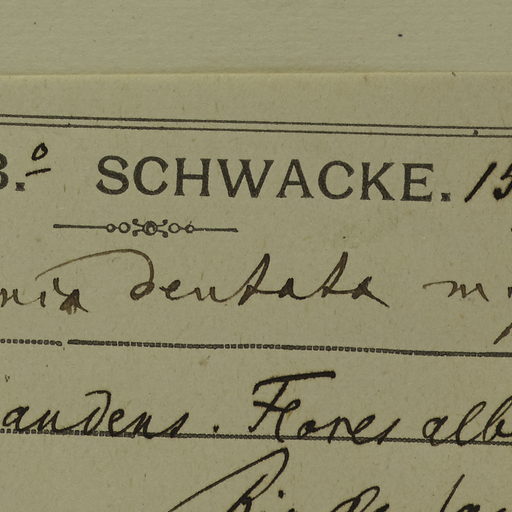 B.º SCHWACKE. 15
nia dentata m
andens. Flores alb
Rio